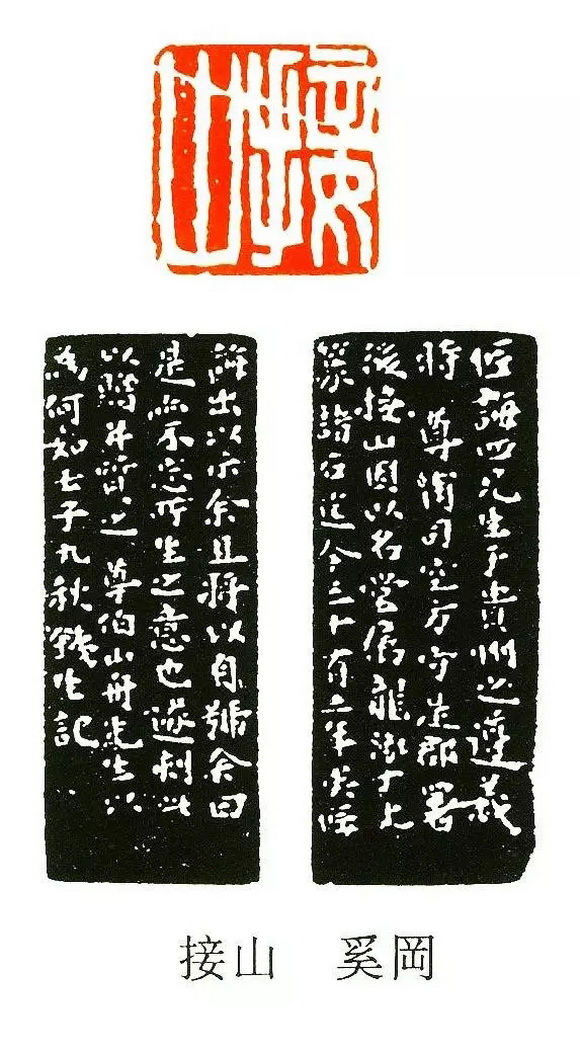 接山
誨四兄生于貴州之遵義
時 尊甫司空方守是郡署
後接山因以名堂屬龍泓丁丈
篆諸石迄今三十有二年矣偶
出以示余且將以自號余曰
是亦不忘所生之意也遂刻此
以贈并質之 尊伯山舟先生以
為何如壬子九秋鐵生記
接山 奚岡